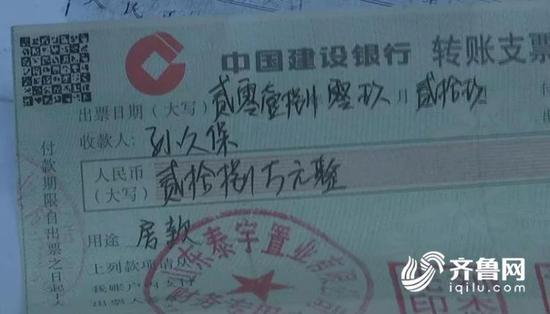 中国建设银行 转账支票
出票日期（大写） 贰零壹捌 零玖 月 贰拾玖
收款人：孙久保
人民币（大写） 贰拾捌万元整
用途 房款
上列款项请从
我账户内支付
出票人
付款期限自出票之日起
泰宇置业有限公司
财务专用章
齐鲁网
iqilu.com